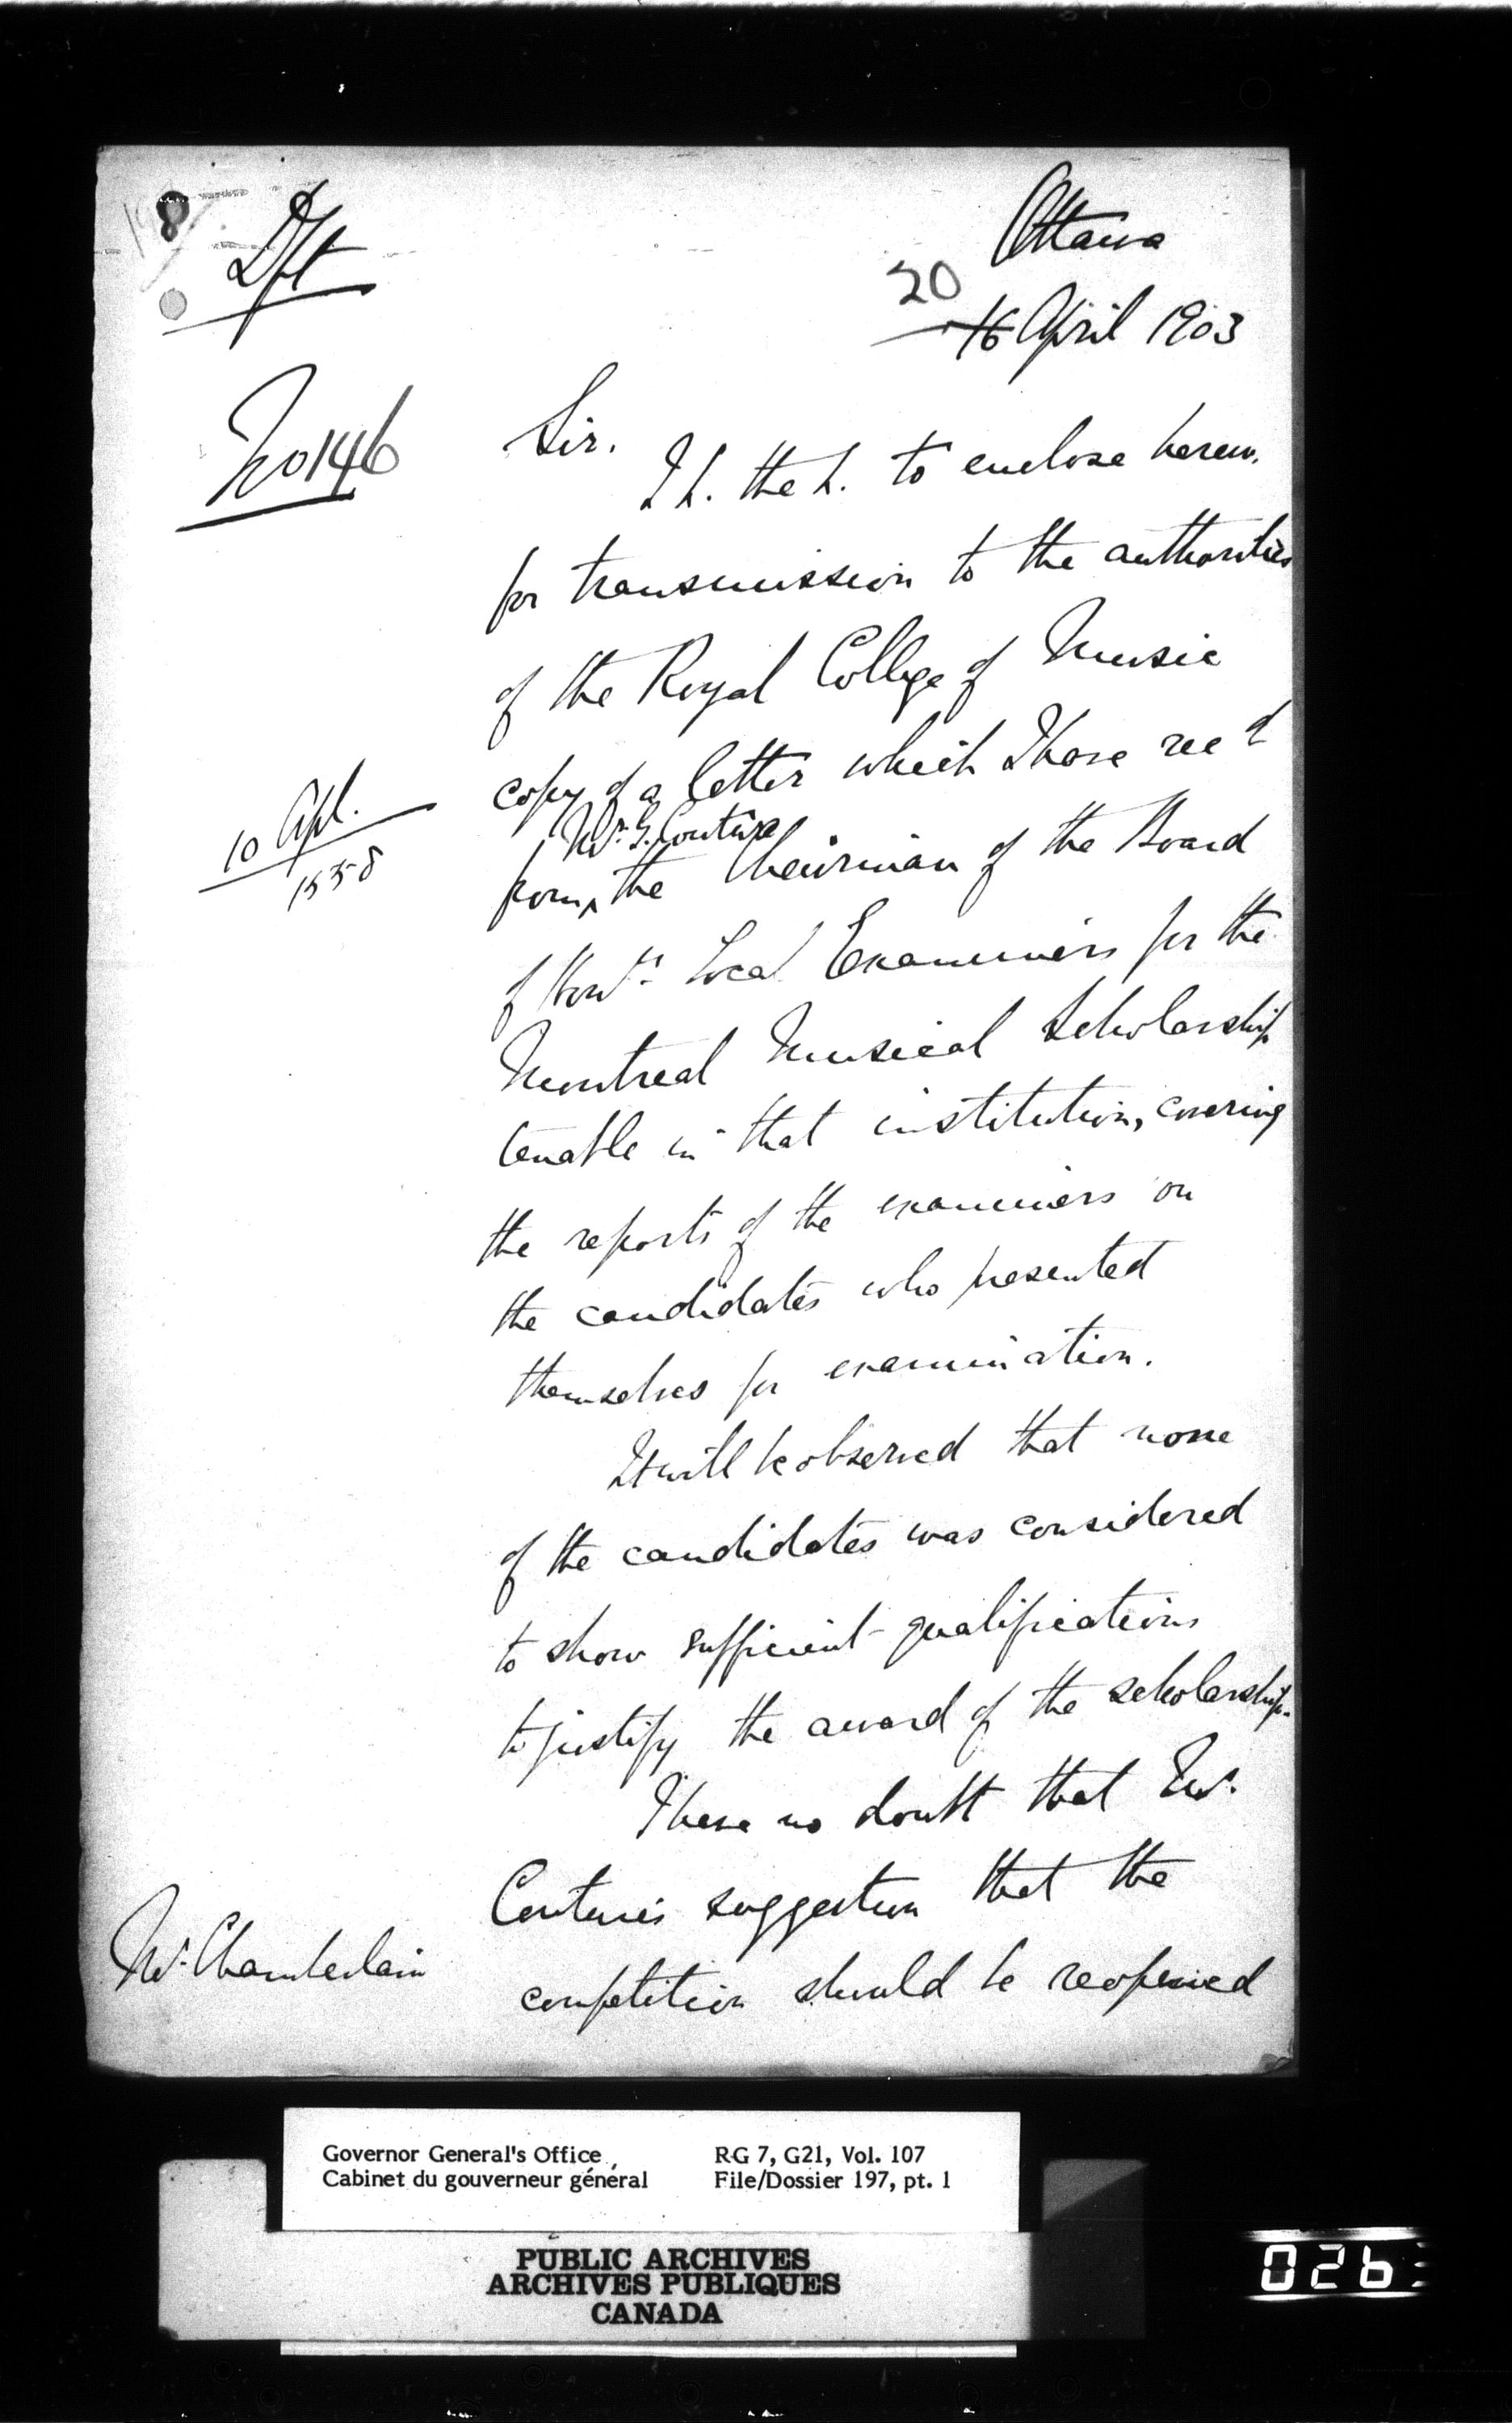 8
Dft
Ottawa
20
16 April 1903
No 146
Sir.
I h. the h. to enclose herew.
for transmission to the authorities
of the Royal College of Music
copy of a letter which I have recd
10 Apl.
1558
Mr. G. Couture
from ^ the Chairman of the Board
of Hony. Local Examiners for the
Montreal Musical Scholarship
tenable in that institution, covering
the reports of the examiners on
the candidates who presented
themselves for examination.
It will be observed that none
of the candidates was considered
to show sufficient qualifications
to justify the award of the scholarship.
I have no doubt that Mr.
Couture's suggestion that the
Mr. Chamberlain
competition should be reopened
Governor General's Office
Cabinet du gouverneur général
RG 7, G21, Vol. 107
File/Dossier 197, pt. 1
PUBLIC ARCHIVES
ARCHIVES PUBLIQUES
CANADA
026